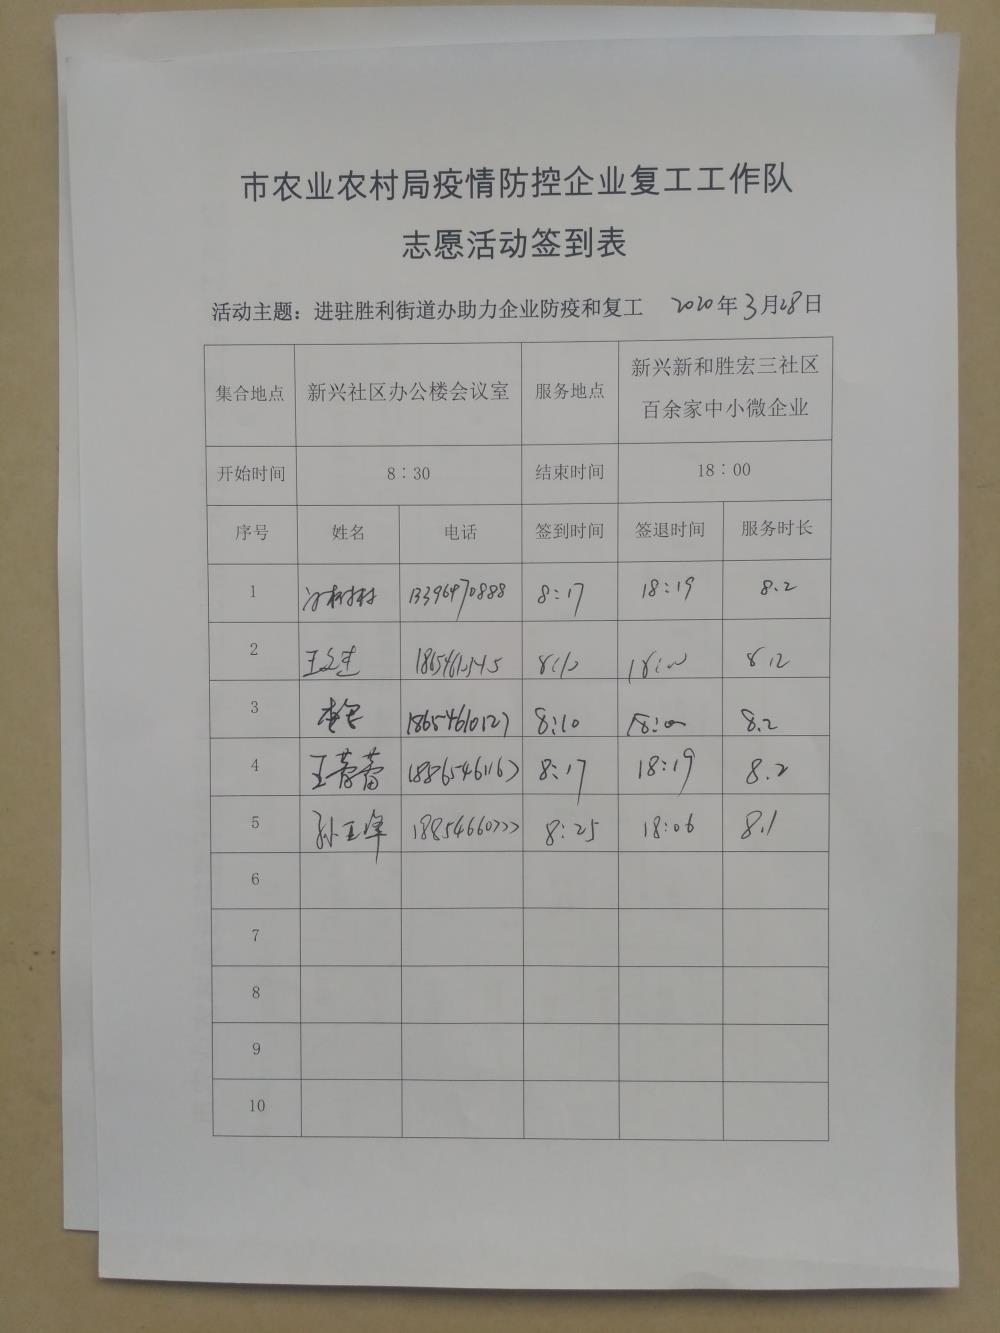 市农业农村局疫情防控企业复工工作队
志愿活动签到表
活动主题：进驻胜利街道办助力企业防疫和复工 2020年3月28日
集合地点 新兴社区办公楼会议室 服务地点 新兴新和胜宏三社区
百余家中小微企业
开始时间 8：30 结束时间 18：00
序号 姓名 电话 签到时间 签退时间 服务时长
1 8:17 18:19 8.2
2 8.2
3 18654610127 8:10 18:00 8.2
4 王蕾蕾 8:17 18:19 8.2
5 8:25 18:06 8.1
6
7
8
9
10